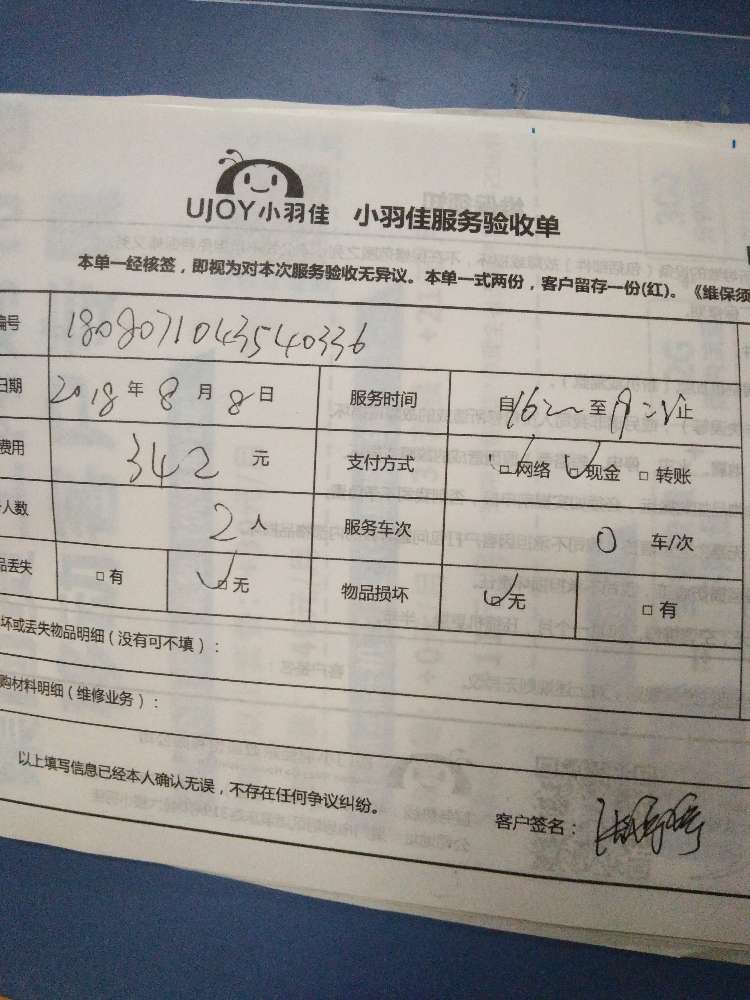 UJOY小羽佳 小羽佳服务验收单
本单一经核签，即视为对本次服务验收无异议。本单一式两份，客户留存一份(红)。《维保须
编号 1808071043540336
日期 2018年8月8日 服务时间 自16 至 止
费用 342元 支付方式 □网络 □现金 □转账
人数 2人 服务车次 0车/次
品丢失 □有 □无 物品损坏 □无 □有
坏或丢失物品明细（没有可不填）：
购材料明细（维修业务）：
以上填写信息已经本人确认无误，不存在任何争议纠纷。
客户签名：